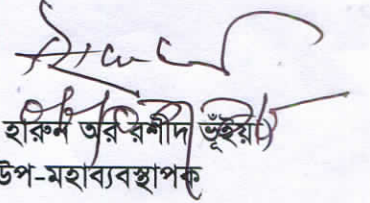 হারুন অর রশীদ ভূঁইয়া)
উপ-মহাব্যবস্থাপক